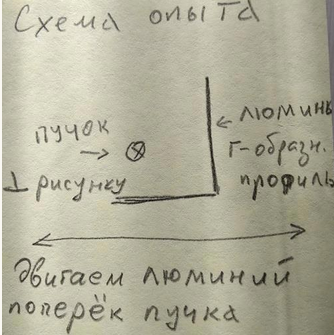 Схема опыта
люминь
пучок
Г-образн.
⊥ рисунку
профиль
Двигаем люминий
поперёк пучка